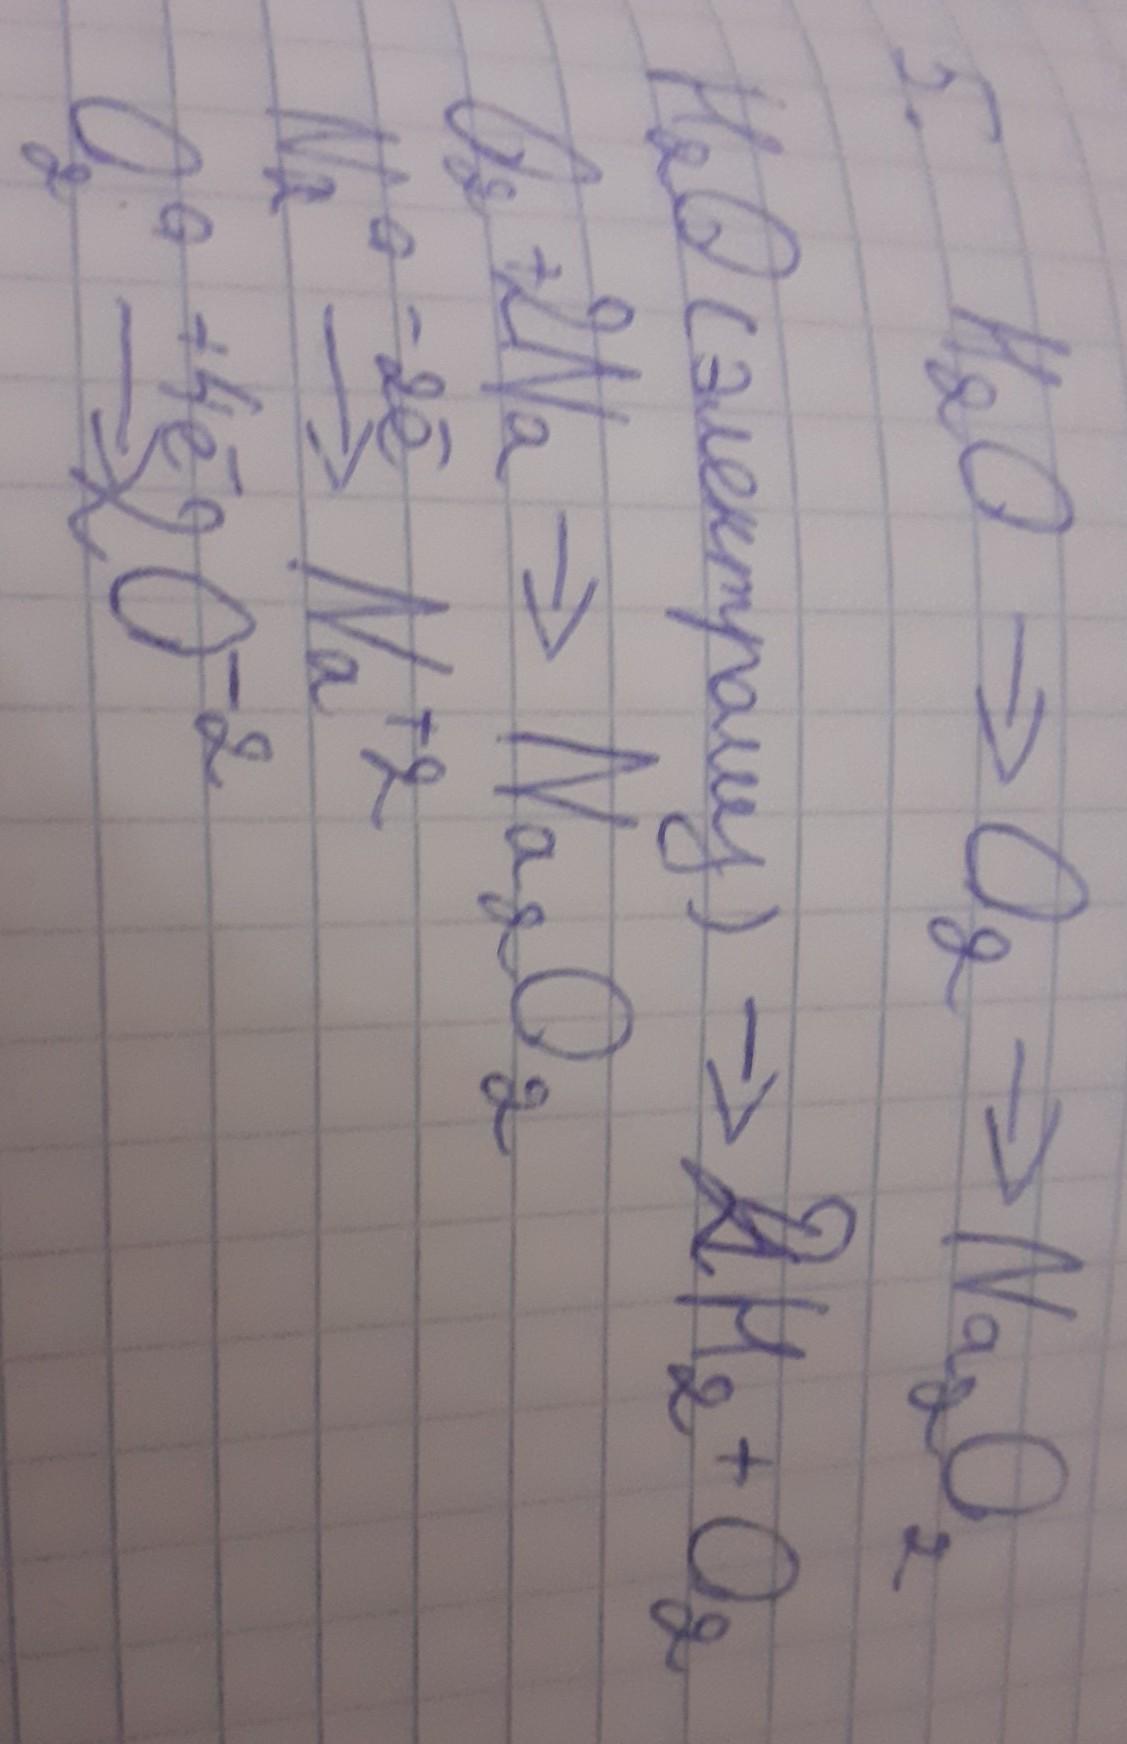 5. H₂O → O₂ → Na₂O₂
H₂O (электролиз) → 2H₂ + O₂
O₂ + 2Na → Na₂O₂
Na⁰ -2e̅ → Na⁺²
O₂⁰ +4e̅ → 2O⁻²